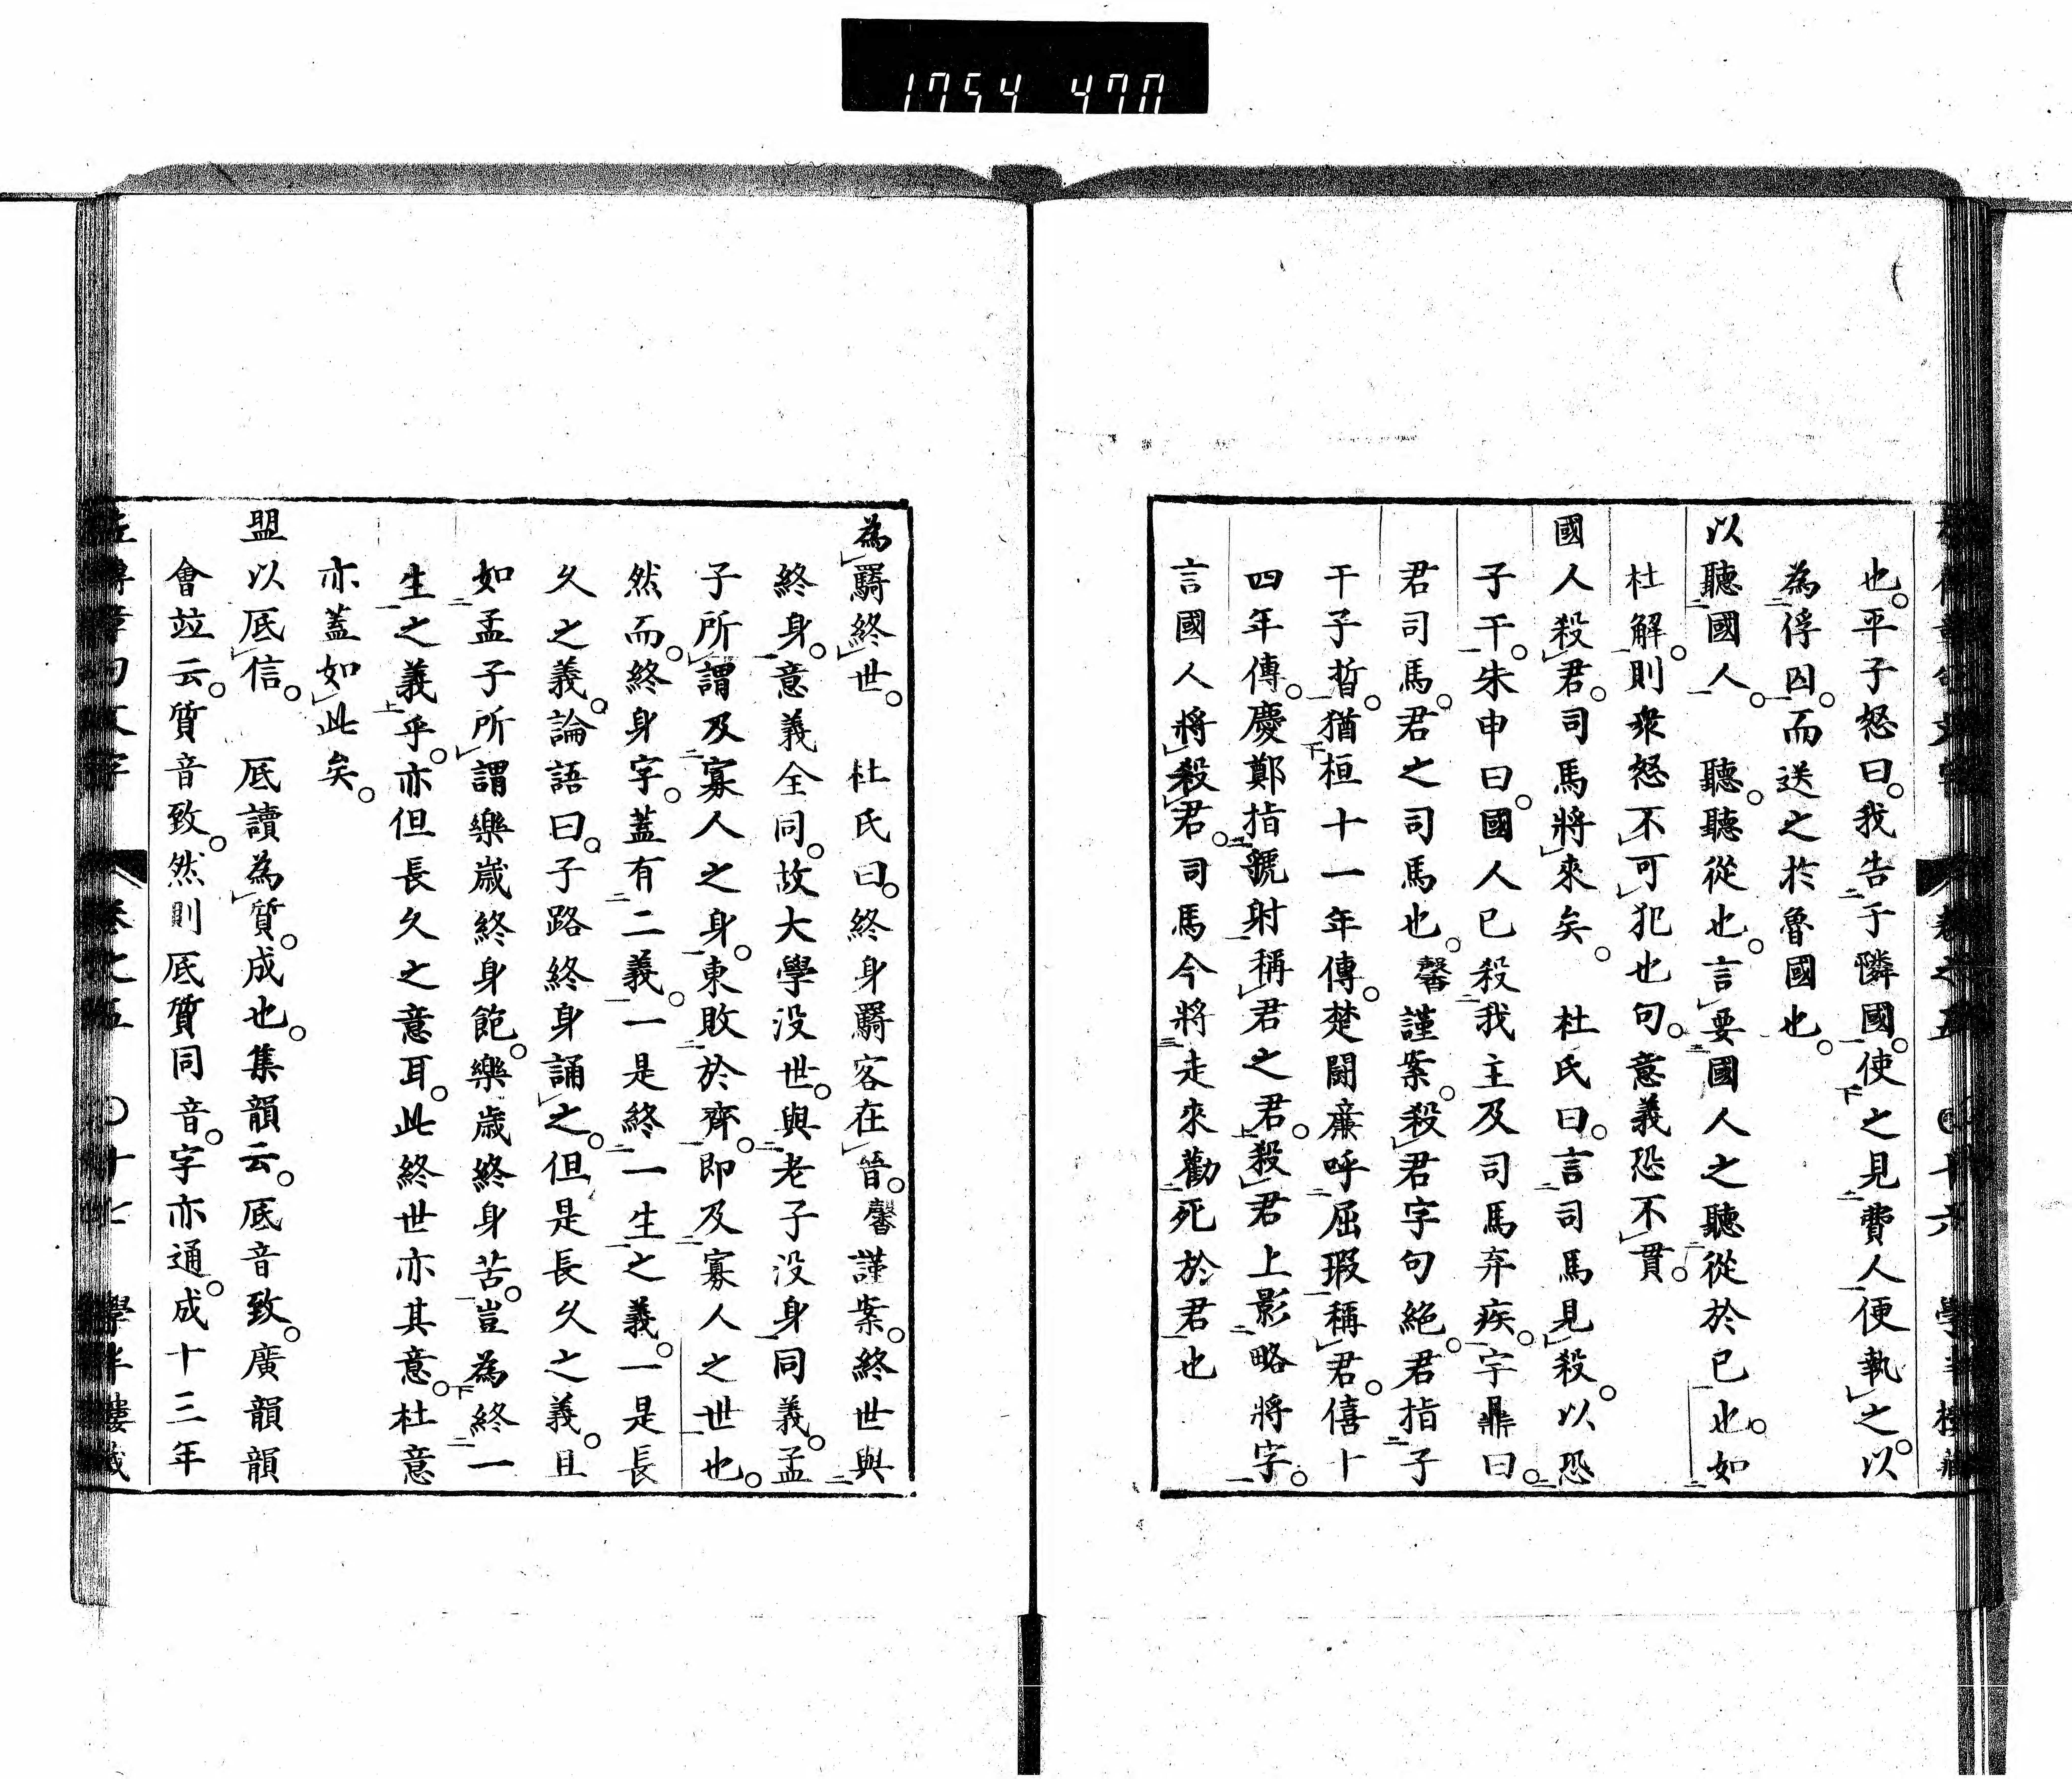 1754 470
也。平子怒曰。我告于隣國。使之見費人便執之。以
為俘囚。而送之於魯國也。
以聽國人。　聽。聽從也。言要國人之聽從於己也。如
杜解。則衆怒不可犯也句。意義恐不貫。
國人殺君。司馬將來矣。　杜氏曰。言司馬見殺。以恐
子干。朱申曰。國人已殺我主及司馬弃疾。字鼎曰。
君司馬。君之司馬也。馨謹案。殺君字句絶。君指子
干子晳。猶桓十一年傳。楚鬭廉呼屈瑕稱君。僖十
四年傳。慶鄭指虢射稱君之君。殺君上影略將字。
言國人將殺君。司馬今將走來勸死於君也
為羇終世。　杜氏曰。終身羇客在晉。馨謹案。終世與
終身。意義全同。故大學没世。與老子没身同義。孟
子所謂及寡人之身。東敗於齊。即及寡人之世也。
然而。終身字。蓋有二義。一是終一生之義。一是長
久之義。論語曰。子路終身誦之。但是長久之義。且
如孟子所謂樂歳終身飽。樂歳終身苦。豈為終一
生之義乎。亦但長久之意耳。此終世亦其意。杜意
亦蓋如此矣。
盟以底信。　底讀為質。成也。集韻云。底音致。廣韻韻
會竝云。質音致。然則底質同音。字亦通。成十三年
卷之五　〇十七　學半樓藏